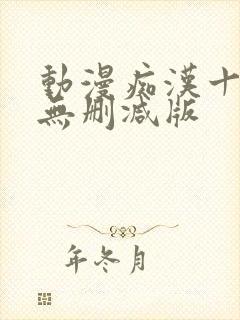 動漫痴漢十
無刪減版
年冬月